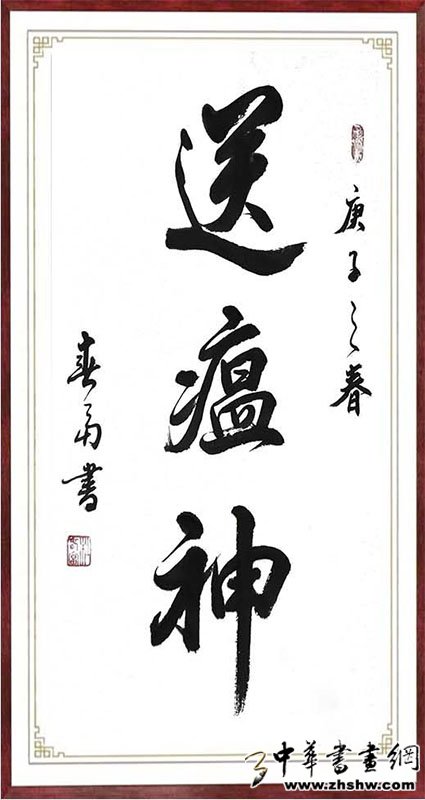 庚子之春
送瘟神
春勇書
中華書畫網
www.zhshw.com